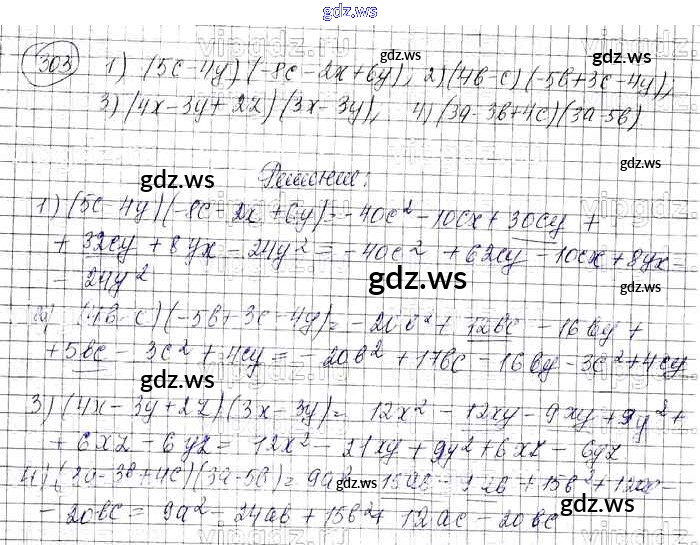 gdz.ws
303 1) (5c-4y)(-8c-2x+6y), 2)(4b-c)(-5b+3c-4y);
3) (4x-3y+2z)(3x-3y), 4)(3a-3b+4c)(3a-5b)
Решение:
1) (5c-4y)(-8c-2x+6y)=-40c²-10cx+30cy+
+32cy+8yx-24y²=-40c²+62cy-10cx+8yx-
-24y²
2) (4b-c)(-5b+3c-4y)=-20b²+12bc-16by+
+5bc-3c²+4cy=-20b²+17bc-16by-3c²+4cy
3) (4x-3y+2z)(3x-3y)=12x²-12xy-9xy+9y²+
+6xz-6yz=12x²-21xy+9y²+6xz-6yz
4) (3a-3b+4c)(3a-5b)=9a²-15ab-9ab+15b²+12ac-
-20bc=9a²-24ab+15b²+12ac-20bc